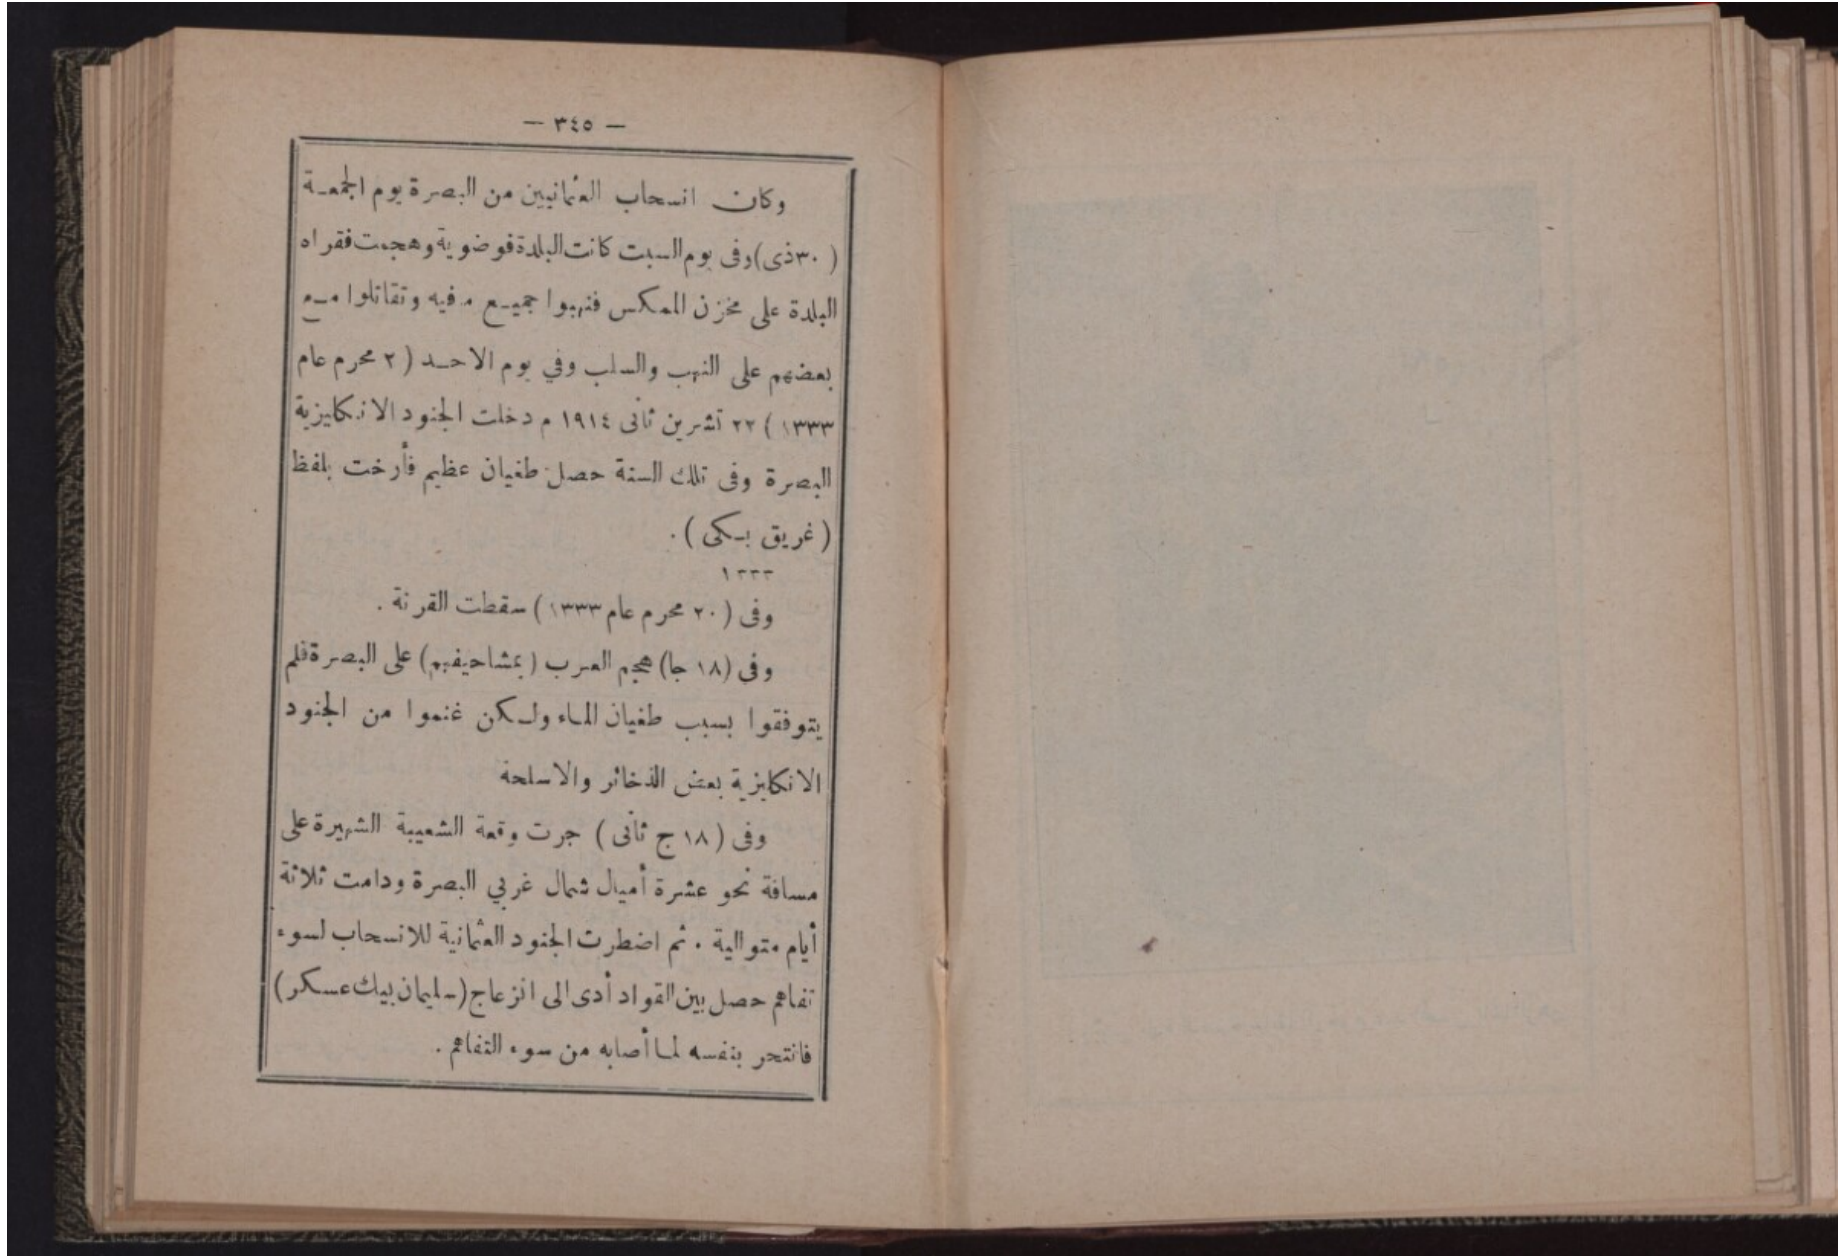 — ٣٤٥ —
وكان انسحاب العثمانيين من البصرة يوم الجمعـة
( ٣٠ ذى ) وفى يوم السبت كانت البلدة فوضوية وهجمت فقراه
البلدة على مخزن المكس فنهبوا جميـع مافيه وتقاتلوا مـع
بعضهم على النهب والسلب وفي يوم الاحـد ( ٢ محرم عام
١٣٣٣ ) ٢٢ تشرين ثانى ١٩١٤ م دخلت الجنود الانكليزية
البصرة وفى تلك السنة حصل طغيان عظيم فأرخت بلفظ
( غريق بـكى ) .
١٣٣٣
وفى ( ٢٠ محرم عام ١٣٣٣ ) سقطت القرنة .
وفى ( ١٨ جا ) هجم العرب ( بمشاحيفهم ) على البصرة فلم
يتوفقوا بسبب طغيان الماء ولـكن غنموا من الجنود
الانكليزية بعض الذخائر والاسلحة
وفى ( ١٨ ج ثانى ) جرت وقعة الشعيبة الشهيرة على
مسافة نحو عشرة أميال شمال غربي البصرة ودامت ثلاثة
أيام متوالية . ثم اضطرت الجنود العثمانية للانسحاب لسوء
تفاهم حصل بين القواد أدى الى انزعاج ( سليمان بيك عسكر )
فانتحر بنفسه لمـا أصابه من سوء التفاهم .